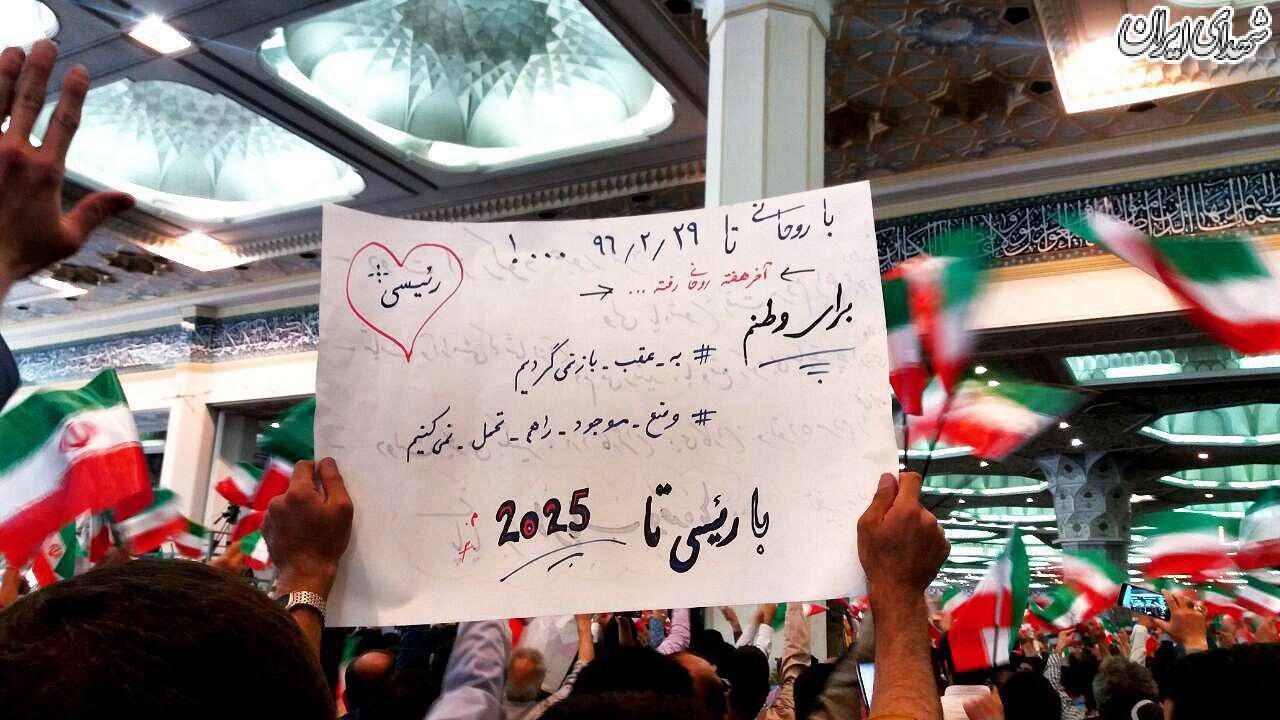 شهدای ایران
با روحانی تا ۹۶/۲/۲۹ ...!
← آخر هفته روحانی رفته ... →
رئیسی
برای وطنم
# به_عقب_باز_نمی گردیم
# وضع_موجود_را_تحمل_نمی کنیم
با رئیسی تا 2025